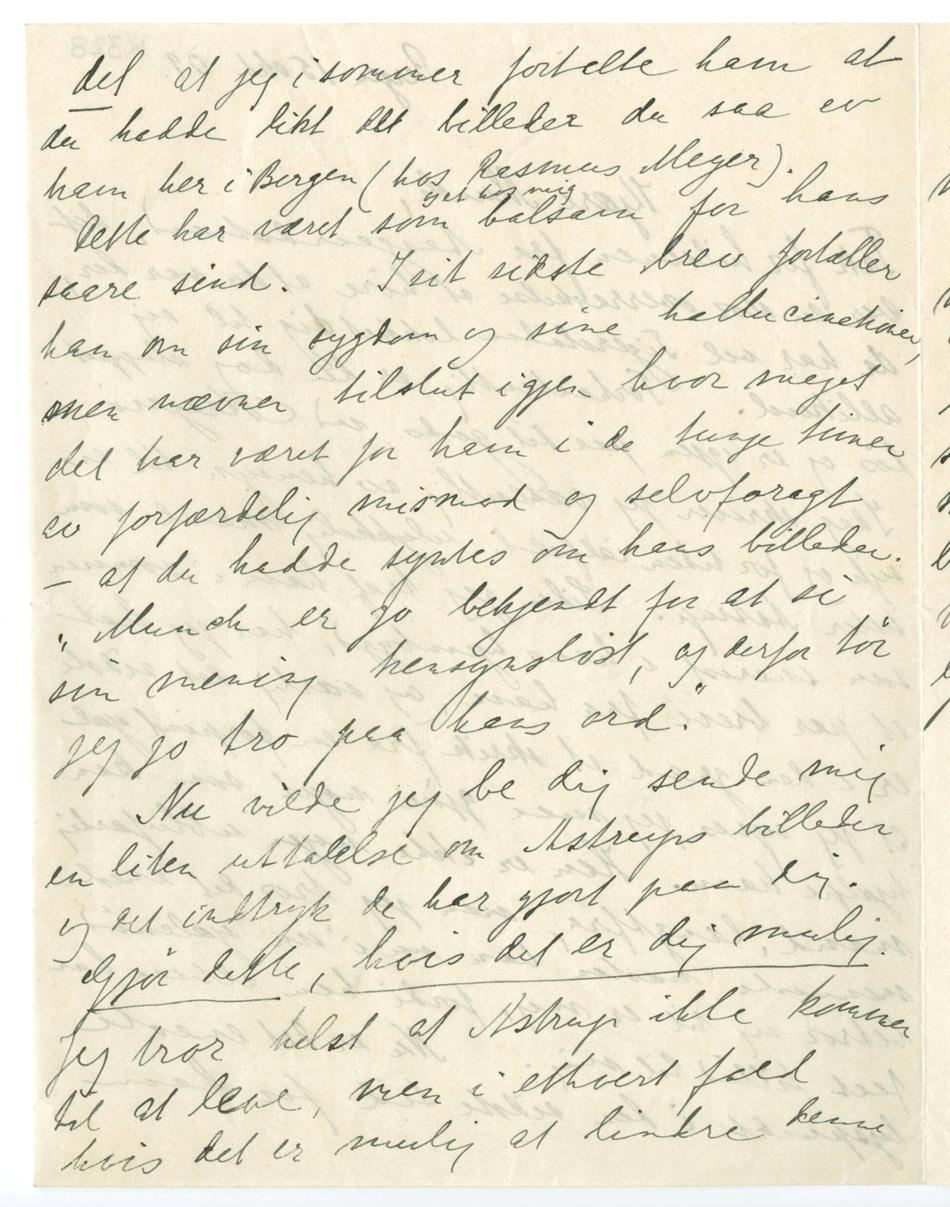 det at jeg i sommer fortelte ham at
du hadde likt det billeder du saa ev
ham her i Bergen (hos Rasmus Meyer).
og hos mig
Dette har været som balsam for hans
saare sind. I sit sidste brev fortæller
han om sin sygdom og sine hallucinationer,
men nævner tilslut igjen hvor meget
det har været for ham i de tunge timer
ev forfærdelig mismod og selvforagt
– at du hadde syntes om hans billeder.
"Munch er jo bekjendt for at si
sin mening hensynsløst, og derfor tør
jeg jo tro paa hans ord."
Nu vilde jeg be dig sende mig
en liten uttalelse om Astrups billeder
og det indtryk de har gjort paa dig.
Gjør dette, hvis det er dig mulig.
Jeg tror helst at Astrup ikke kommer
til at leve, men i ethvert fald
hvis det er mulig at lindre denne